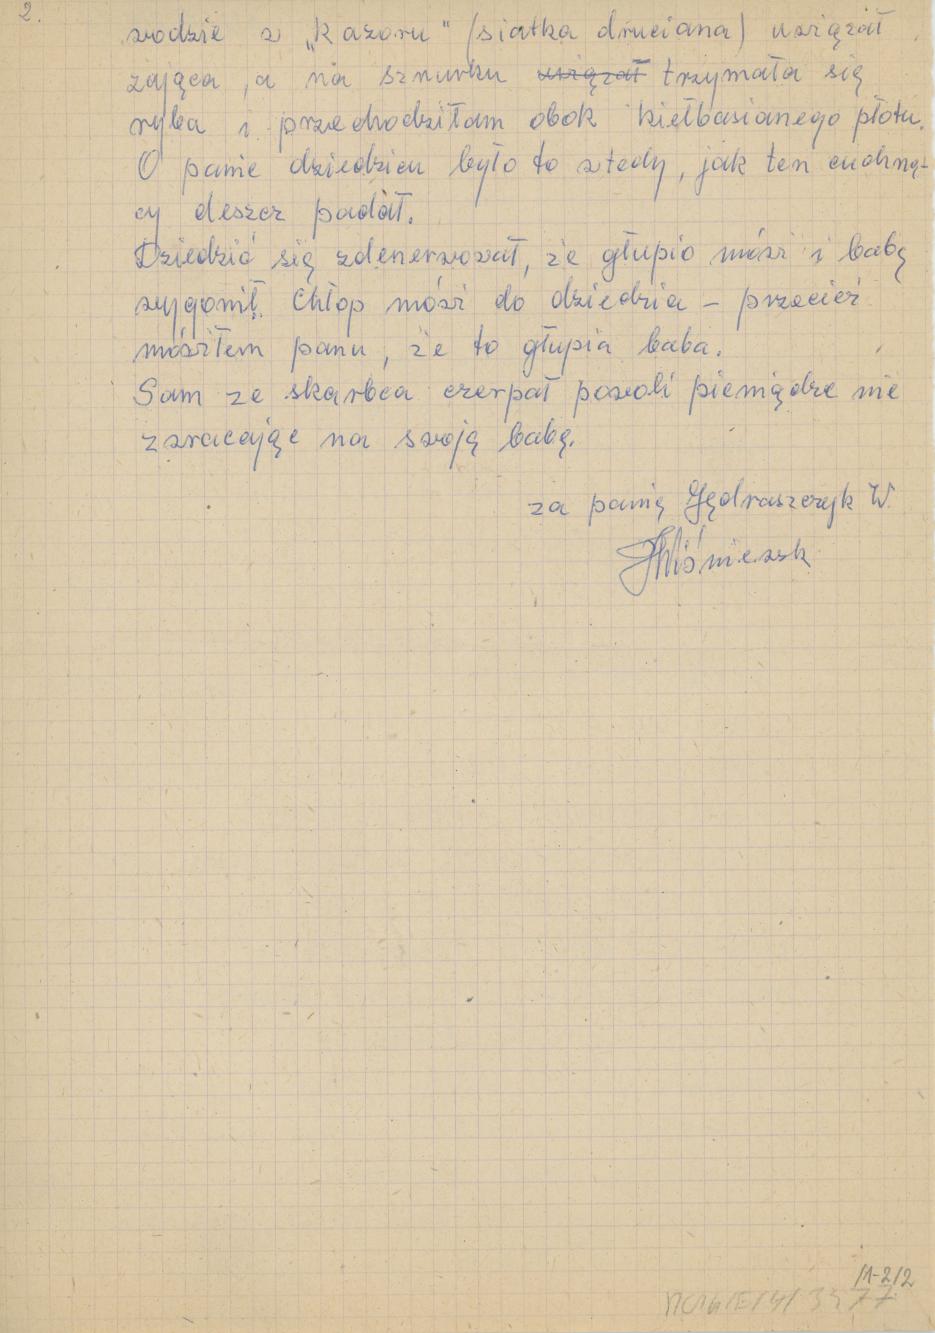 2.
wodzie w "Kazoru" (siatka druciana) uwiązał
zająca, a na sznurku uwiązał trzymała się
ryba i przechodziłam obok kiełbasianego płotu.
O panie dziedzicu było to wtedy, jak ten cuchną-
cy deszcz padał.
Dziedzic się zdenerwował, że głupio mówi i babę
wygonił. Chłop mówi do dziedzica - przecież
mówiłem panu, że to głupia baba.
Sam ze skarbca czerpał powoli pieniądze nie
zwracając na swoją babę.
za panią Jędraszczyk W.
Wiśniewsk
/1-2/2